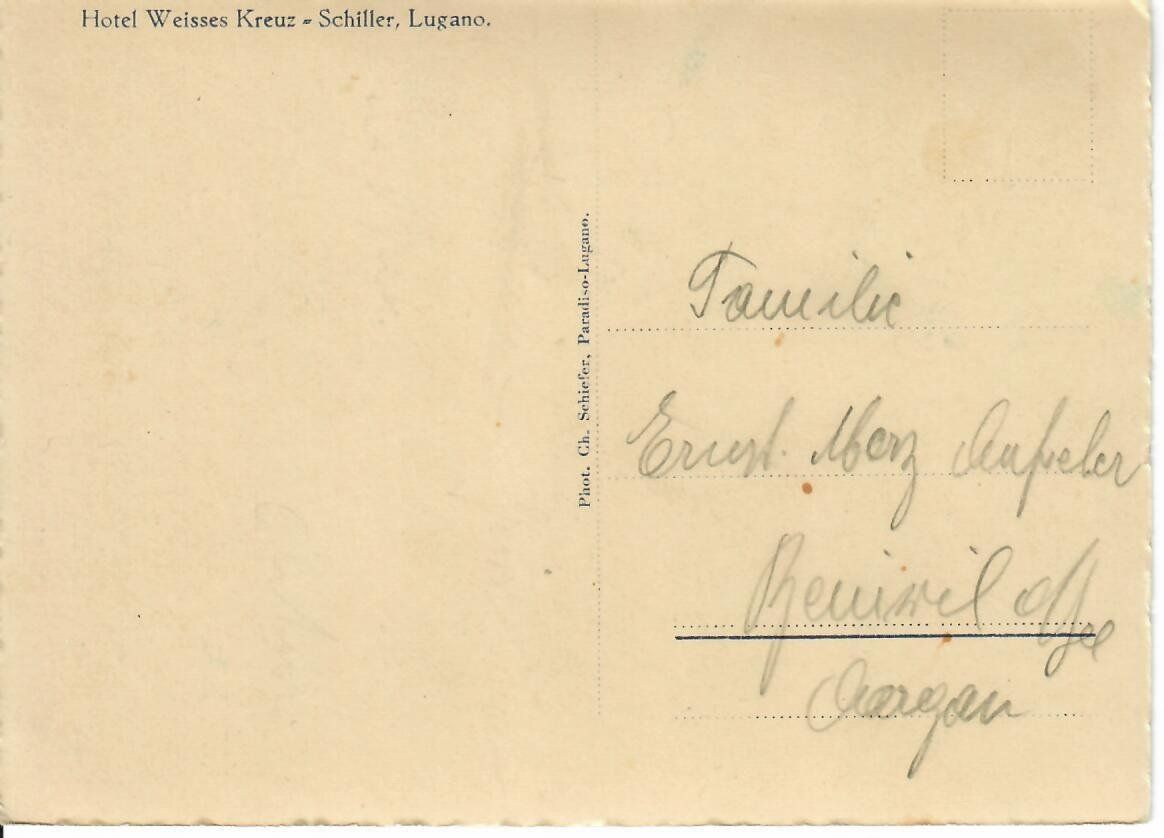 Hotel Weisses Kreuz - Schiller, Lugano.
Phot. Ch. Schiefer, Paradiso-Lugano.
Familie
Ernst. Merz
Beinwil
Aargau